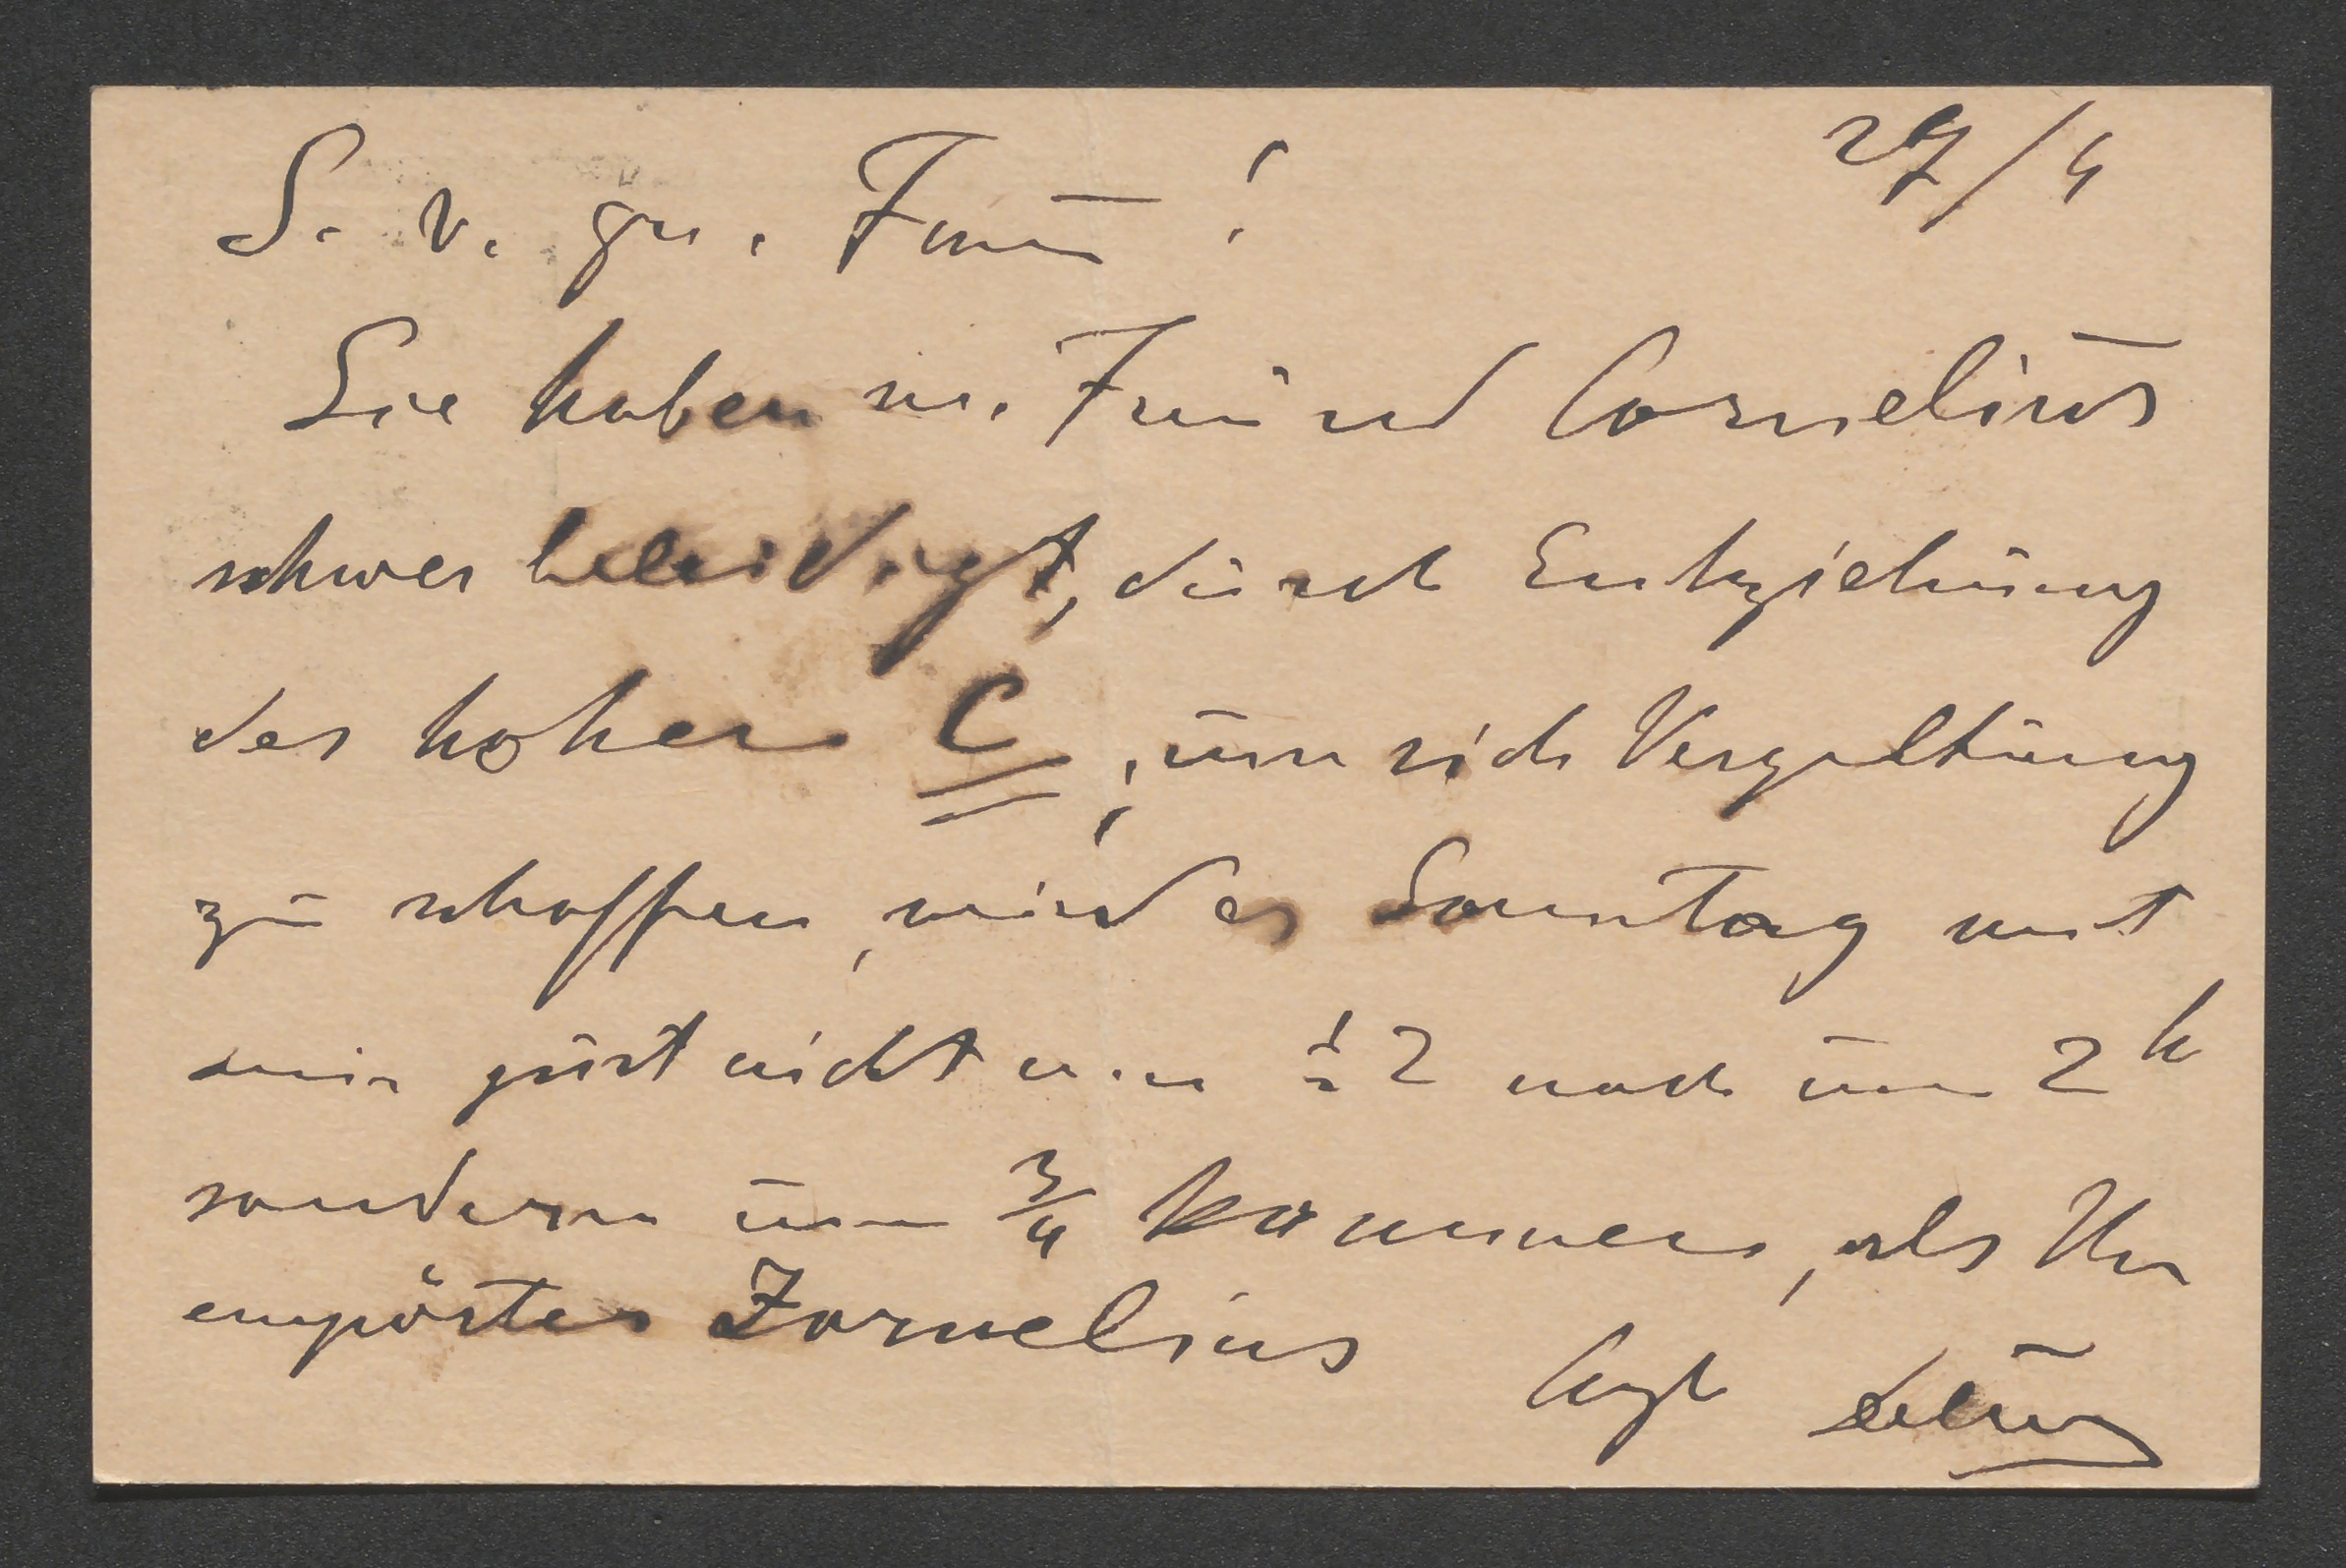 27/4
S. v. gn. Frau!
Sie haben m. Freund Cornelius
schwer beleidigt, durch Entziehung
des hohen C, um sich Vergeltung
zu schaffen, wird er Sonntag mit
mir just nicht um ½2 noch um 2h
sondern um ¾ kommen, als Ihr
empörter Zornelius